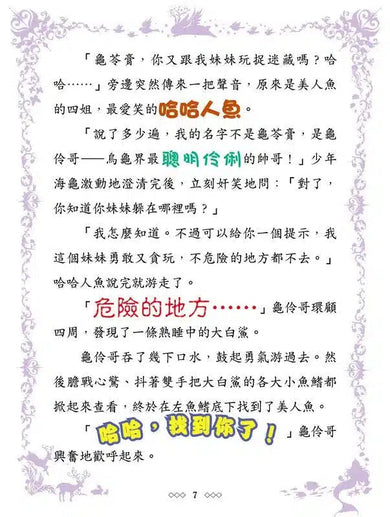 「龜苓膏，你又跟我妹妹玩捉迷藏嗎？哈
哈……」旁邊突然傳來一把聲音，原來是美人魚
的四姐，最愛笑的哈哈人魚。
「說了多少遍，我的名字不是龜苓膏，是龜
伶哥——烏龜界最聰明伶俐的帥哥！」少年
海龜激動地澄清完後，立刻奸笑地問：「對了，
你知道你妹妹躲在哪裡嗎？」
「我怎麼知道。不過可以給你一個提示，我
這個妹妹勇敢又貪玩，不危險的地方都不去。」
哈哈人魚說完就游走了。
「危險的地方……」龜伶哥環顧
四周，發現了一條熟睡中的大白鯊。
龜伶哥吞了幾下口水，鼓起勇氣游過去。然
後膽戰心驚、抖著雙手把大白鯊的各大小魚鰭都
掀起來查看，終於在左魚鰭底下找到了美人魚。
「哈哈，找到你了！」龜伶哥
興奮地歡呼起來。
7